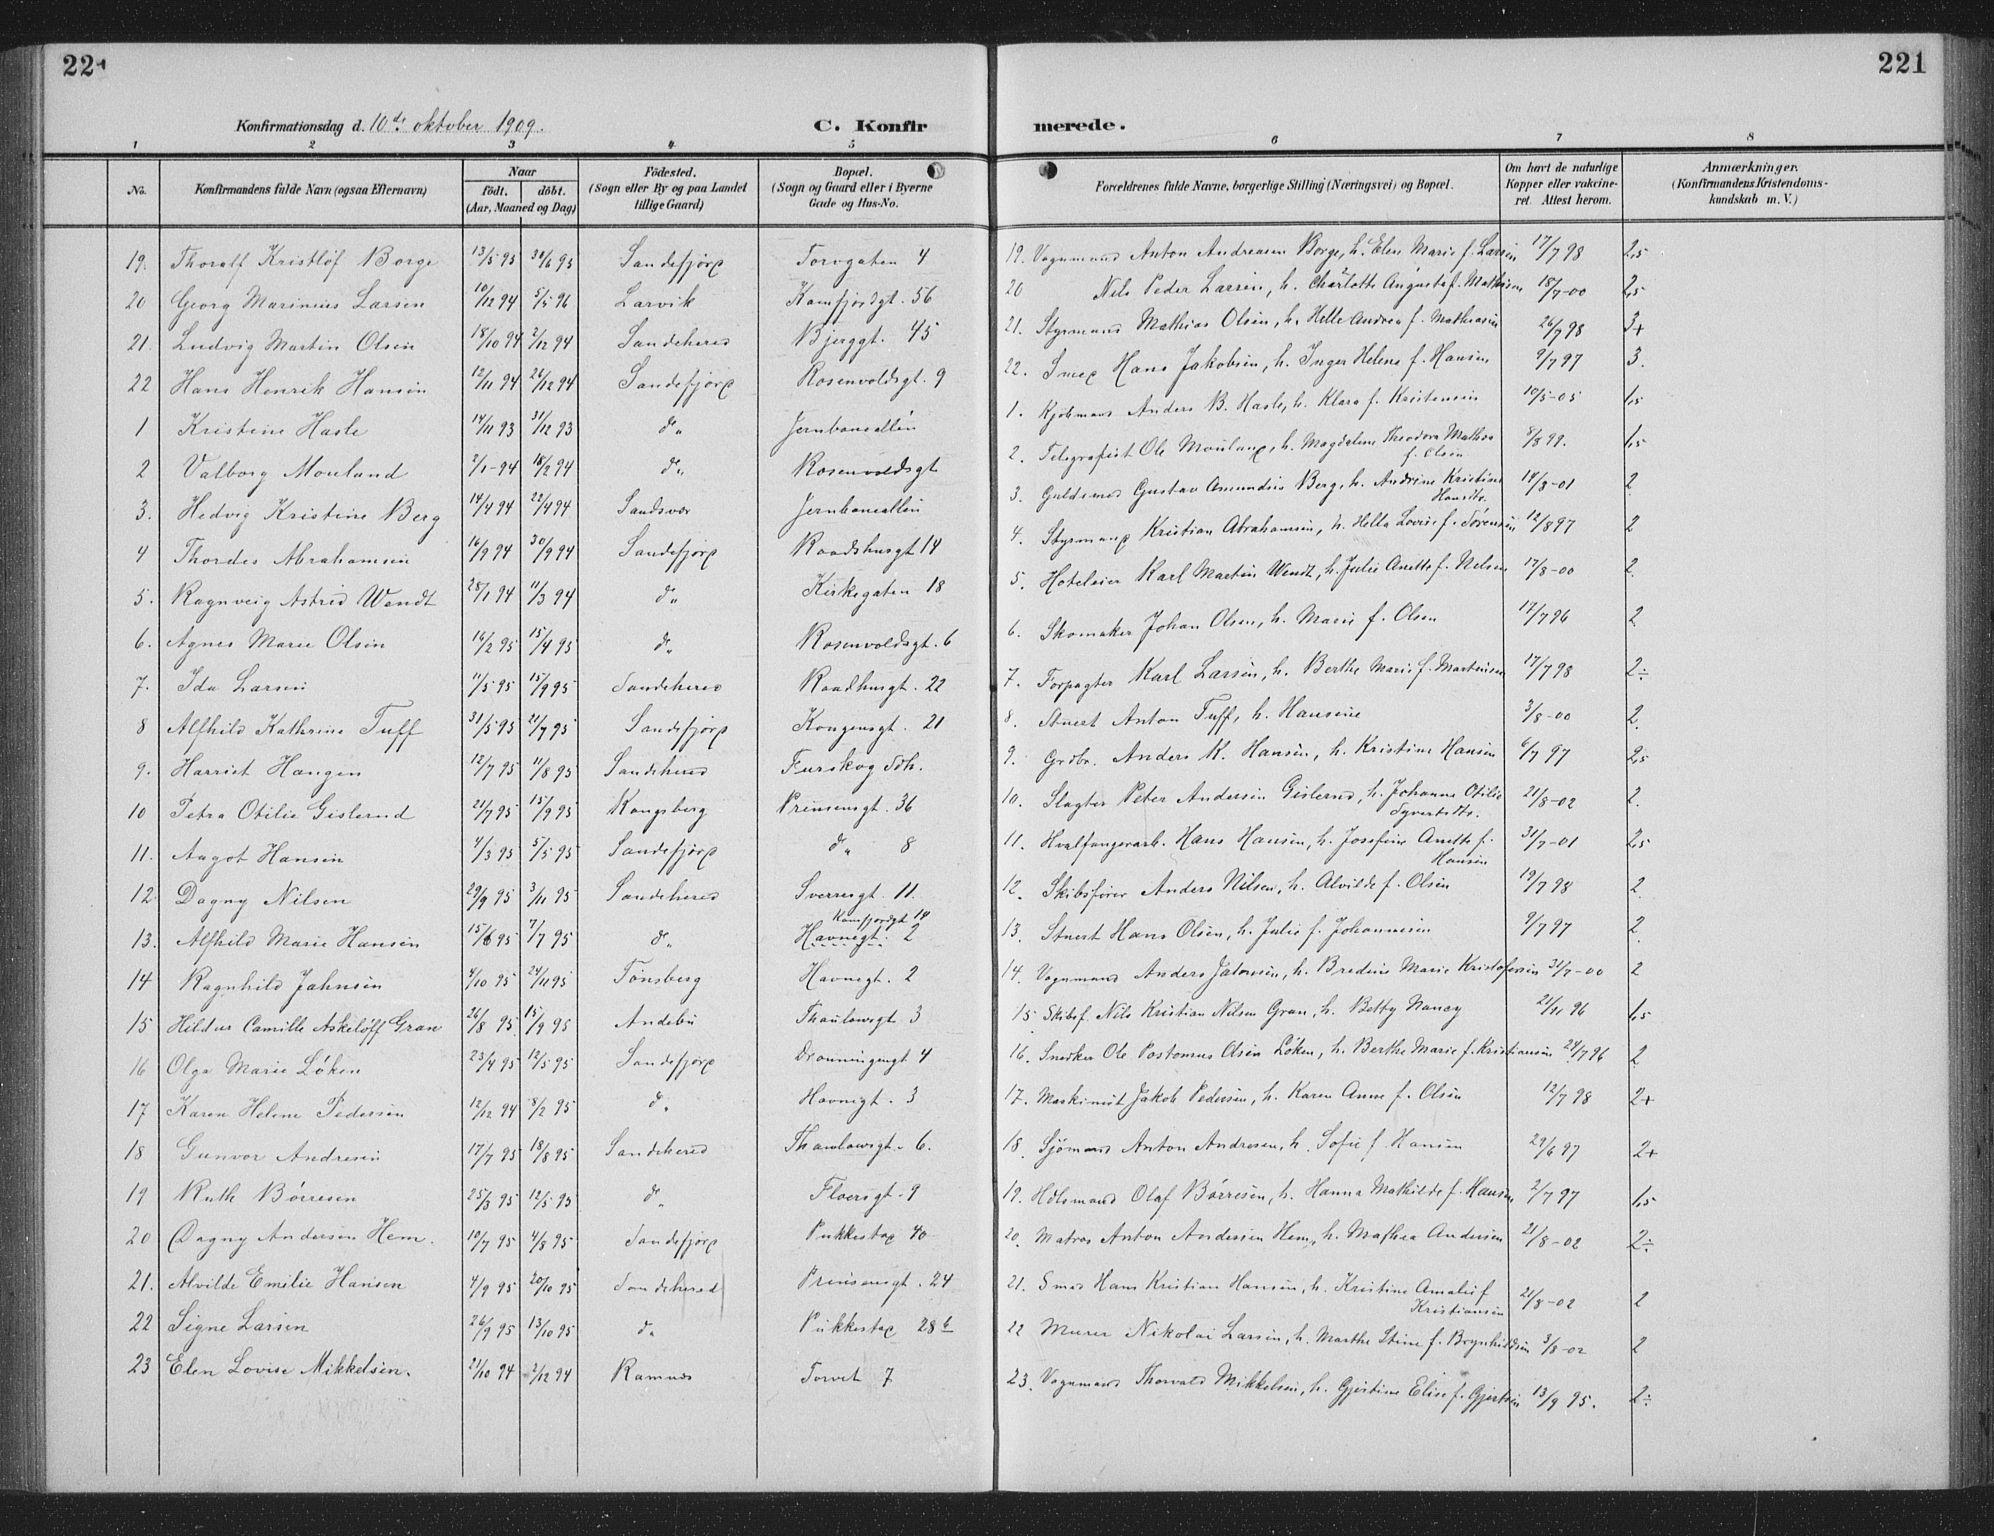 221
221
Konfirmationsdag d. 10de oktober 1909.
C. Konfirmerede.
1 2 3 4 5 6 7 8
No.
Konfirmandens fulde Navn (ogsaa Efternavn)
Naar
födt. döbt.
(Aar, Maaned og Dag)
Födested.
(Sogn eller By og paa Landet
tillige Gaard)
Bopæl.
(Sogn og Gaard eller i Byerne
Gade og Hus-No.
Forældrenes fulde Navne, borgerlige Stilling (Næringsvei) og Bopæl.
Om havt de naturlige
Kopper eller vakcine-
ret Attest herom.
Anmærkninger.
(Konfirmandens Kristendoms-
kundskab m. V.)
19. Thoralf Kristlöf Borge 13/5 95 30/6 95 Sandefjord Torvgaten 4 19. Vognmand Anton Andreasen Borge, h. Elen Marie f. Larsen 17/7 98 2,5
20 Georg Marinius Larsen 10/12 94 5/5 96 Larvik Kamfjordgt. 56 20 Nils Peder Larsen, h. Charlotte Augusta f. Mathisen 18/7-00 2,5
21. Ludvig Martin Olsen 18/10 94 2/12 94 Sandeherred Bjerggt. 45 21. Styrmand Mathias Olsen, h. Helle Andrea f. Mathiasen 26/7 98 3+
22 Hans Henrik Hansen 12/11 94 26/12 94 Sandefjord Rosenvoldsgt. 9 22. Smed Hans Jakobsen, h. Inger Helene f. Hansen 9/7 97 3.
1 Kristine Hasle 14/11 93 31/12 93 do „ Jernbanealléen 1. Kjöbmand Anders B. Hasle, h. Klara f. Kristensen 10/5-05 1,5
2 Valborg Mouland 2/1-94 18/2 94 do „ Rosenvoldsgt 2. Telegrafist Ole Mouland, h. Magdalene Theodora Mathea
f. Olsen 8/8 99. 1,5
3. Hedvig Kristine Berg 14/4 94 22/4 94 Sandsvær Jernbanealléen 3. Guldsmed Gustav Amundsen Berg, h. Andrine Kristine
Hansdtr. 14/8-01 2
4 Thordes Abrahamsen 16/9 94 30/9 94 Sandefjord Raadhusgt 14 4. Styrmand Kristian Abrahamsen, h. Hella Lovise f. Sørensen 12/8 97 2
5. Ragnveig Astrid Wendt 28/1 94 11/3 94 do „ Kirkegaten 18 5. Hoteleier Karl Martin Wendt, h. Julie Anette f. Nelsen 17/8-00 2.
6. Agnes Marie Olsen 16/2 95 15/4 95 do „ Rosenvoldsgt. 6 6. Skomaker Johan Olsen, h. Marie f. Olsen 17/7 96 2
7. Ida Larsen 11/5 95 15/9 95 Sandehered Raadhusgt. 22 7. Forpagter Karl Larsen, h. Berthe Marie f. Martinsen 17/7 98 2÷
8 Alfhild Kathrine Tuff 31/5 95 21/7 95 Sandefjord Kongensgt. 21 8. Stuert Anton Tuff, h. Hansine 3/8-00 2.
9. Harriet Haugen 12/7 95 11/8 95 Sandehered Furskog Sdh. 9. Grdbr. Anders K. Hansen, h. Kristine Hansen 6/7 97 2,5
10 Petra Otilie Gislerud 21/7 95 15/9 95 Kongsberg Prinsensgt. 36 10. Slagter Peter Andersen Gislerud, h. Johanne Otilie
Syvertsdtr. 21/8-02 2.
11. Aagot Hansen 4/3 95 5/5 95 Sandefjord do „ 8 11. Hvalfangerarb. Hans Hansen, h. Josefine Anette f.
Hansen 31/7-01 2,5
12 Dagny Nilsen 29/9 95 3/11 95 Sandehered Sverresgt. 11. 12. Skibsfører Anders Nilsen, h. Alvilde f. Olsen 19/7 98 2.
Kamfjordgt 14
13. Alfhild Marie Hansen 15/6 95 7/7 95 do „ Havnegt. 2 13. Stuert Hans Olsen, h. Julie f. Johannesen 9/7 97 2.
14 Ragnhild Jahnsen 4/10 95 24/11 95 Tønsberg Havnegt. 2 14. Vognmand Anders Jahnsen, h. Bredine Marie Kristofersen 31/7-00 2
15 Hildur Camille Askelöff Gran 26/8 95. 15/9 95 Andebu Thaulowsgt. 3 15. Skibsf. Nils Kristian Nilsen Gran, h. Betty Nancy 21/11 96 1,5
16 Olga Marie Löken 23/4 95 12/5 95 Sandefjord Dronningengt 4 16. Snedker Ole Postomus Olsen Løken, h. Berthe Marie f. Kristiansen 24/7 96 2
17 Karen Helene Pedersen 12/12 94 8/2 95 do „ Havnegt. 3 17. Maskinist Jakob Pedersen, h. Karen Anne f. Olsen 12/7 98 2+
18 Gunvor Andresen 17/7 95 18/8 95 Sandehered Thaulowsgt. 6. 18. Sjömand Anton Andresen, h. Sofie f. Hansen 29/6 97 2+
19 Ruth Börresen 25/3 95 12/5 95 do „ Floersgt. 9 19. Olaf Börresen, h. Hanna Mathilde f. Hansen 2/7 97 1,5
20 Dagny Andersen Hem. 10/7 95 4/8 95 Sandefjord Pukkestad 40 20. Matros Anton Andersen Hem, h. Mathea Andersen 21/8-02 2÷
21. Alvilde Emilie Hansen 4/9 95 20/10 95 Sandehered Prinsensgt. 24 21. Smed Hans Kristian Hansen, h. Kristine Amalie f.
Kristiansen 21/8-02 2
22 Signe Larsen 26/9 95 13/10 95 do „ Pukkestad 28b 22 Murer Nikolai Larsen, h. Marthe Stine f. Brynhildsen 3/8-02 2
23 Elen Lovise Mikkelsen. 21/10 94 2/12 94 Ramnes Torvet 7 23. Vognmand Thorvald Mikkelsen, h. Gjertine Elise f. Gjertsen 13/9 95. 2÷